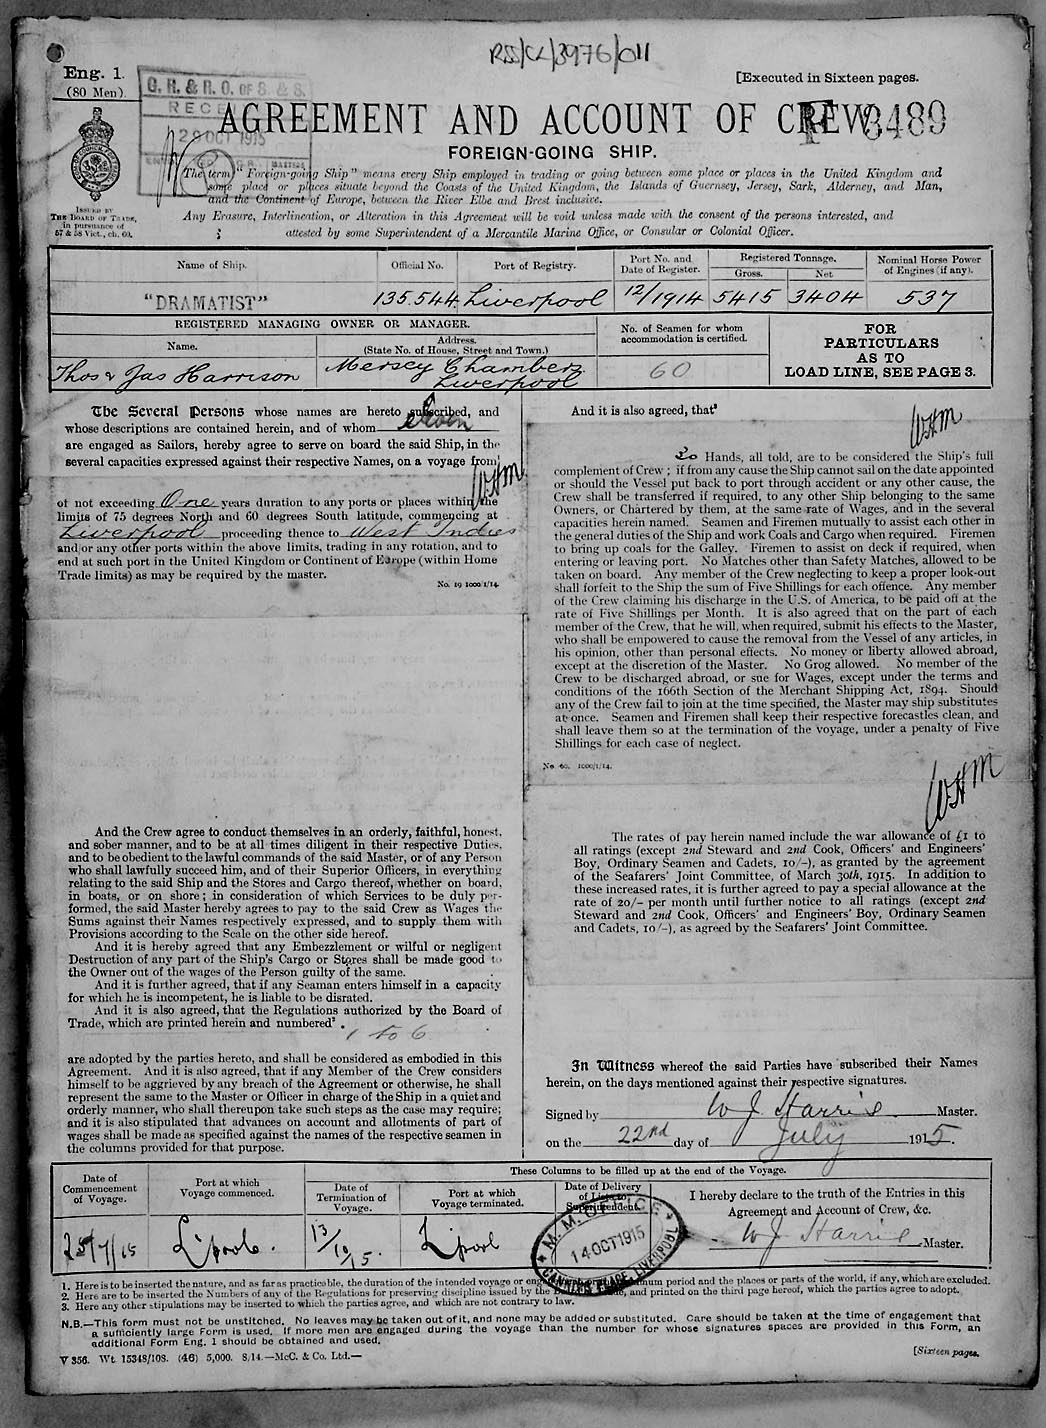 RSS/CL/3976/011
Eng. 1.
(80 Men).
[Executed in Sixteen pages.
G. R. & R. O. OF S. & S.
RECE
29 OCT 1915
AGREEMENT AND ACCOUNT OF CREW
F 3489
FOREIGN-GOING SHIP.
The term "Foreign-going Ship" means every Ship employed in trading or going between some place or places in the United Kingdom and
some place or places situate beyond the Coasts of the United Kingdom, the Islands of Guernsey, Jersey, Sark, Alderney, and Man,
and the Continent of Europe, between the River Elbe and Brest inclusive.
Any Erasure, Interlineation, or Alteration in this Agreement will be void unless made with the consent of the persons interested, and
attested by some Superintendent of a Mercantile Marine Office, or Consular or Colonial Officer.
ISSUED BY
THE BOARD OF TRADE,
in pursuance of
57 & 58 Vict., ch. 60.
Name of Ship. Official No. Port of Registry. Port No. and Date of Register. Registered Tonnage. Gross. Net Nominal Horse Power of Engines (if any).
"DRAMATIST" 135.544 Liverpool 12/1914 5415 3404 537
REGISTERED MANAGING OWNER OR MANAGER.
Name. Address. (State No. of House, Street and Town.)
No. of Seamen for whom accommodation is certified.
FOR
PARTICULARS
AS TO
LOAD LINE, SEE PAGE 3.
Thos & Jas Harrison Mersey Chambers 60
Liverpool
The Several Persons whose names are hereto subscribed, and
whose descriptions are contained herein, and of whom
are engaged as Sailors, hereby agree to serve on board the said Ship, in the
several capacities expressed against their respective Names, on a voyage from¹
WHM
of not exceeding One years duration to any ports or places within the
limits of 75 degrees North and 60 degrees South latitude, commencing at
Liverpool proceeding thence to West Indies
and/or any other ports within the above limits, trading in any rotation, and to
end at such port in the United Kingdom or Continent of Europe (within Home
Trade limits) as may be required by the master.
No. 19 1000 1/14.
And the Crew agree to conduct themselves in an orderly, faithful, honest,
and sober manner, and to be at all times diligent in their respective Duties,
and to be obedient to the lawful commands of the said Master, or of any Person
who shall lawfully succeed him, and of their Superior Officers, in everything
relating to the said Ship and the Stores and Cargo thereof, whether on board,
in boats, or on shore; in consideration of which Services to be duly per-
formed, the said Master hereby agrees to pay to the said Crew as Wages the
Sums against their Names respectively expressed, and to supply them with
Provisions according to the Scale on the other side hereof.
And it is hereby agreed that any Embezzlement or wilful or negligent
Destruction of any part of the Ship's Cargo or Stores shall be made good to
the Owner out of the wages of the Person guilty of the same.
And it is further agreed, that if any Seaman enters himself in a capacity
for which he is incompetent, he is liable to be disrated.
And it is also agreed, that the Regulations authorized by the Board of
Trade, which are printed herein and numbered² .
1 to 6
are adopted by the parties hereto, and shall be considered as embodied in this
Agreement. And it is also agreed, that if any Member of the Crew considers
himself to be aggrieved by any breach of the Agreement or otherwise, he shall
represent the same to the Master or Officer in charge of the Ship in a quiet and
orderly manner, who shall thereupon take such steps as the case may require;
and it is also stipulated that advances on account and allotments of part of
wages shall be made as specified against the names of the respective seamen in
the columns provided for that purpose.
And it is also agreed, that³
WHM
30 Hands, all told, are to be considered the Ship's full
complement of Crew; if from any cause the Ship cannot sail on the date appointed
or should the Vessel put back to port through accident or any other cause, the
Crew shall be transferred if required, to any other Ship belonging to the same
Owners, or Chartered by them, at the same rate of Wages, and in the several
capacities herein named. Seamen and Firemen mutually to assist each other in
the general duties of the Ship and work Coals and Cargo when required. Firemen
to bring up coals for the Galley. Firemen to assist on deck if required, when
entering or leaving port. No Matches other than Safety Matches, allowed to be
taken on board. Any member of the Crew neglecting to keep a proper look-out
shall forfeit to the Ship the sum of Five Shillings for each offence. Any member
of the Crew claiming his discharge in the U.S. of America, to be paid off at the
rate of Five Shillings per Month. It is also agreed that on the part of each
member of the Crew, that he will, when required, submit his effects to the Master,
who shall be empowered to cause the removal from the Vessel of any articles, in
his opinion, other than personal effects. No money or liberty allowed abroad,
except at the discretion of the Master. No Grog allowed. No member of the
Crew to be discharged abroad, or sue for Wages, except under the terms and
conditions of the 166th Section of the Merchant Shipping Act, 1894. Should
any of the Crew fail to join at the time specified, the Master may ship substitutes
at once. Seamen and Firemen shall keep their respective forecastles clean, and
shall leave them so at the termination of the voyage, under a penalty of Five
Shillings for each case of neglect.
No. 60. 1000/1/14.
WHM
The rates of pay herein named include the war allowance of £1 to
all ratings (except 2nd Steward and 2nd Cook, Officers' and Engineers'
Boy, Ordinary Seamen and Cadets, 10/-), as granted by the agreement
of the Seafarers' Joint Committee, of March 30th, 1915. In addition to
these increased rates, it is further agreed to pay a special allowance at the
rate of 20/- per month until further notice to all ratings (except 2nd
Steward and 2nd Cook, Officers' and Engineers' Boy, Ordinary Seamen
and Cadets, 10/-), as agreed by the Seafarers' Joint Committee.
In Witness whereof the said Parties have subscribed their Names
herein, on the days mentioned against their respective signatures.
Signed by W J Harris Master.
on the 22nd day of July 1915.
These Columns to be filled up at the end of the Voyage.
Date of Commencement of Voyage. Port at which Voyage commenced. Date of Termination of Voyage. Port at which Voyage terminated. Date of Delivery of Lists to Superintendent.
I hereby declare to the truth of the Entries in this
Agreement and Account of Crew, &c.
25/7/15 L'pool. 13/10/15. L'pool
M. M. OFFICE
14 OCT 1915
CANNING PLACE, LIVERPOOL
W J Harris Master.
1. Here is to be inserted the nature, and as far as practicable, the duration of the intended voyage or eng um period and the places or parts of the world, if any, which are excluded.
2. Here are to be inserted the Numbers of any of the Regulations for preserving discipline issued by the B e, and printed on the third page hereof, which the parties agree to adopt.
3. Here any other stipulations may be inserted to which the parties agree, and which are not contrary to law.
N.B.—This form must not be unstitched. No leaves may be taken out of it, and none may be added or substituted. Care should be taken at the time of engagement that
a sufficiently large Form is used. If more men are engaged during the voyage than the number for whose signatures spaces are provided in this Form, an
additional Form Eng. 1 should be obtained and used.
V 356. Wt 15348/108. (46) 5,000. 8/14.—McC. & Co. Ltd.—
[Sixteen pages.